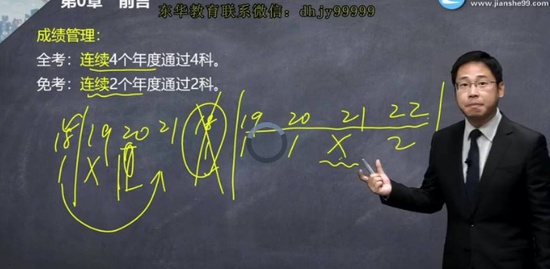 第0章 前言
东华教育联系微信：dhjy99999
www.jianshe99.com
成绩管理：
全考：连续4个年度通过4科。
免考：连续2个年度通过2科。
18 19 20 21
19 20 21 22
1 X
1 1 X 2